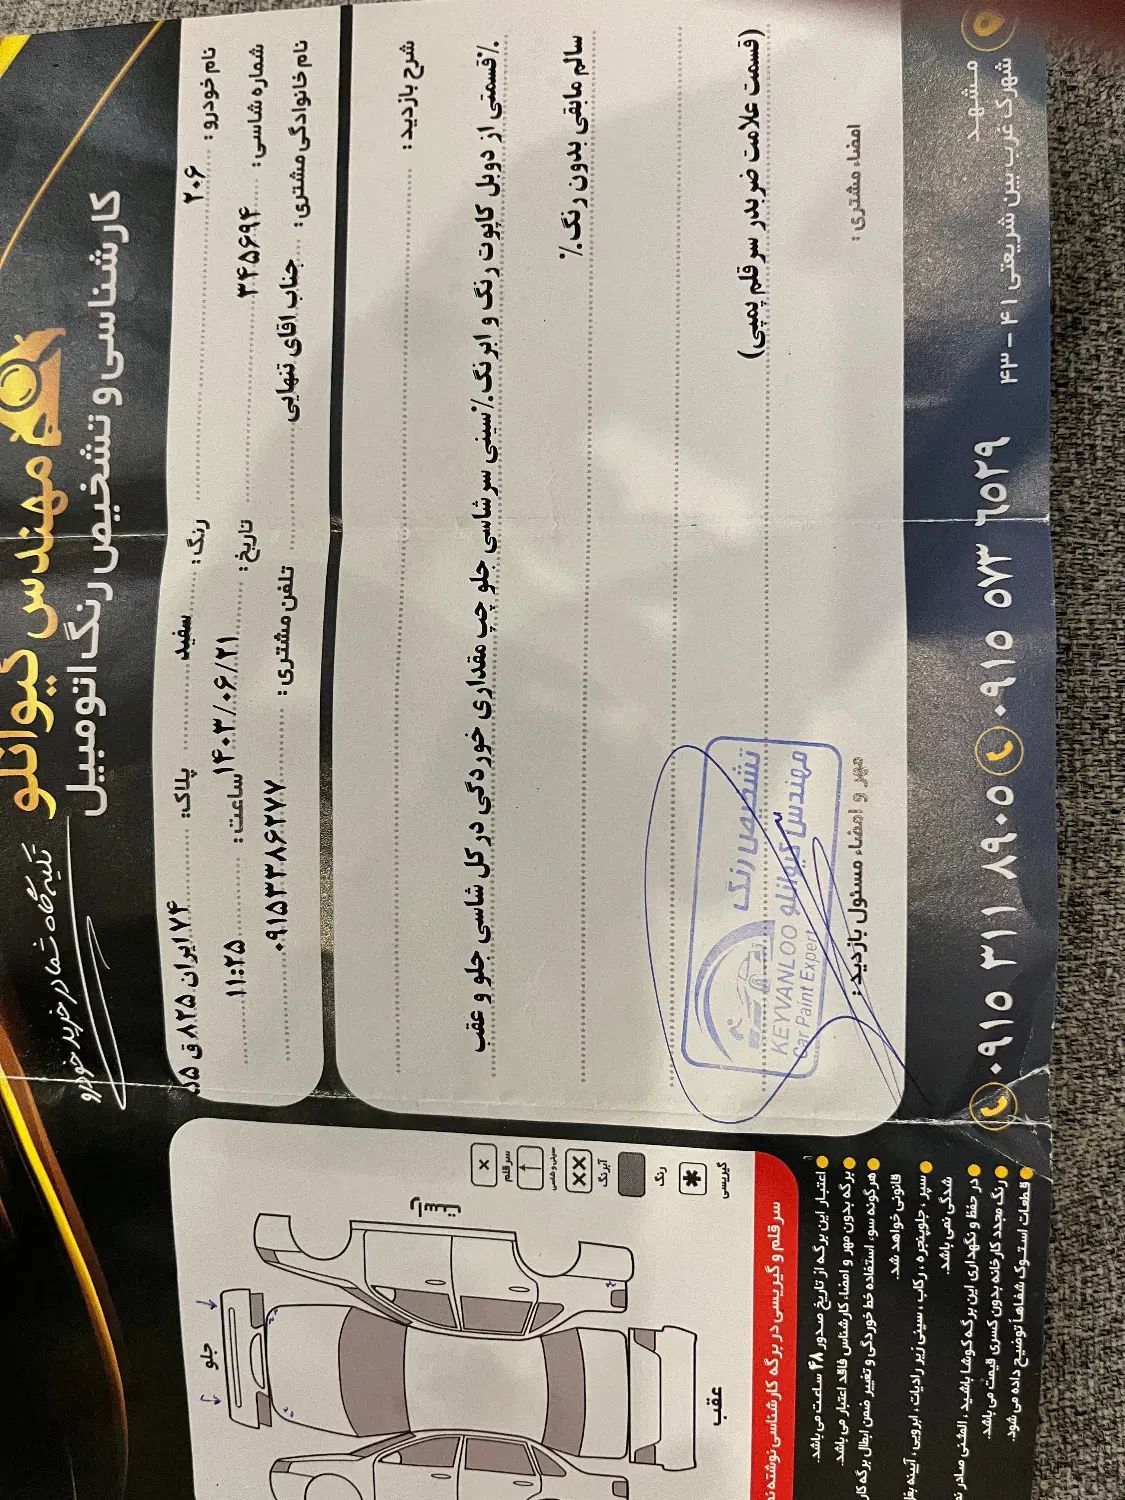 مهندس کیوانلو
کارشناسی و تشخیص رنگ اتومبیل
تکیه گاه شما در خرید خودرو
نام خودرو: ۲۰۶ رنگ: سفید پلاک: ۷۴ ایران ۸۲۵ ق ۵۵
شماره شاسی: ۳۴۵۶۹۴ تاریخ: ۱۴۰۳/۰۶/۲۱ ساعت: ۱۱:۲۵
نام خانوادگی مشتری: جناب اقای تنهایی تلفن مشتری: ۰۹۱۵۳۳۸۶۲۷۷
شرح بازدید:
٪قسمتی از دوبل کاپوت رنگ و ابرنگ٪سینی سرشاسی جلو چپ مقداری خوردگی در کل شاسی جلو و عقب
سالم مابقی بدون رنگ٪
(قسمت علامت ضربدر سرقلم پمپی)
امضاء مشتری:
مهر و امضاء مسئول بازدید:
تشخیص رنگ
مهندس کیوانلو
KEYVANLOO
Car Paint Expert
مشهد
شهرک غرب بین شریعتی ۴۱ - ۴۳
۰۹۱۵ ۵۷۳ ۶۵۲۹
۰۹۱۵ ۳۱۱ ۸۹۰۵
راست
جلو
عقب
سرقلم
سینی و شاسی
آبرنگ
رنگ
گیریسی
سرقلم و گیریسی در برگه کارشناسی نوشته
اعتبار این برگه از تاریخ صدور ۴۸ ساعت می باشد.
برگه بدون مهر و امضاء کارشناس فاقد اعتبار می باشد.
هرگونه سوء استفاده خط خوردگی و تغییر ضمن ابطال برگه
قانونی خواهد شد.
سپر ، جلوپنجره ، رکاب ، سینی زیر رادیات ، ابرویی ، آیینه
شدگی نمی باشد.
در حفظ و نگهداری این برگه کوشا باشید ، المثنی صادر
رنگ مجدد کارخانه بدون کسری قیمت می باشد.
قطعات استوک شفاهاً توضیح داده می شود.